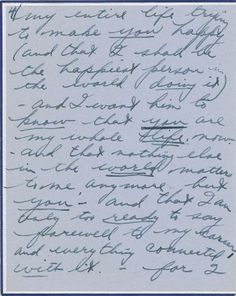 my entire life trying
to make you happy
(and that I shall be
the happiest person in
the world doing it)
- and I want him to
know that you are
my whole life now
- and that nothing else
in the world matters
to me anymore, but
you - and that I am
only too ready to say
farewell to my career,
and everything connected
with it. - for I